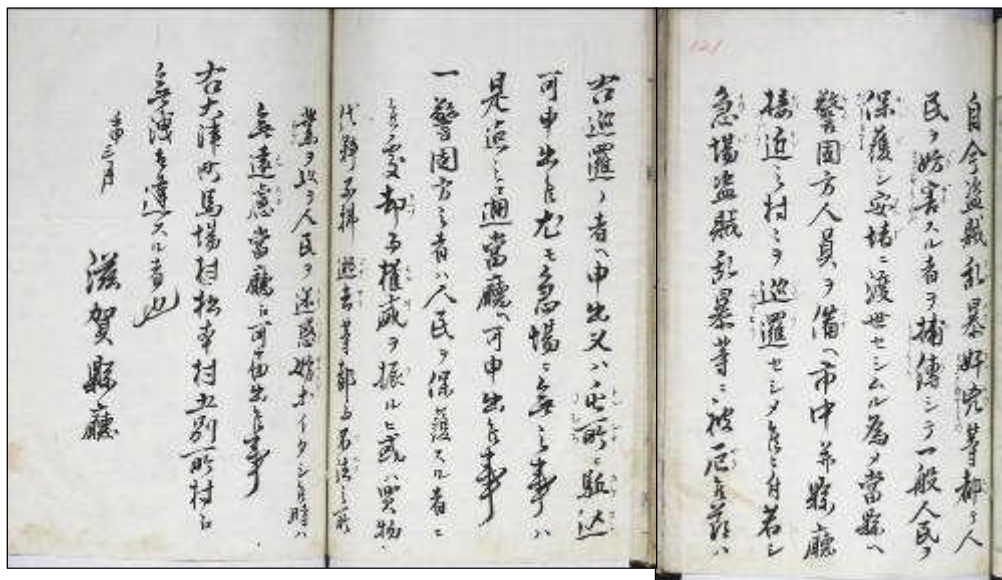 121
自今盗賊乱暴奸宄等都テ人
民ヲ妨害スル者ヲ捕縛シテ一般人民ヲ
保護シ安堵ニ渡世セシムル為メ當縣ヘ
警固方人員ヲ備ヘ市中并縣廳
接近之村々ヲ巡邏セシメ候ニ付若シ
急場盗賊乱暴等ニ被厄候節ハ
右巡邏ノ者ヘ申出又ハ屯所ニ駈込
可申出候尤モ急場ニ無之事ハ
是迠之通當廳ヘ可申出候事
一警固方之者ハ人民ヲ保護スル者ニ
候處却而権威ヲ振ルヒ或ハ買物
代料不拂 等都而不法之所
業ヲ以テ人民ヲ迷惑 イタシ候時ハ
無遠慮當廳ヘ可届出候事
右大津町馬場村松本村上別所村ヘ
無洩相達スル者也
壬申三月
滋賀縣廳